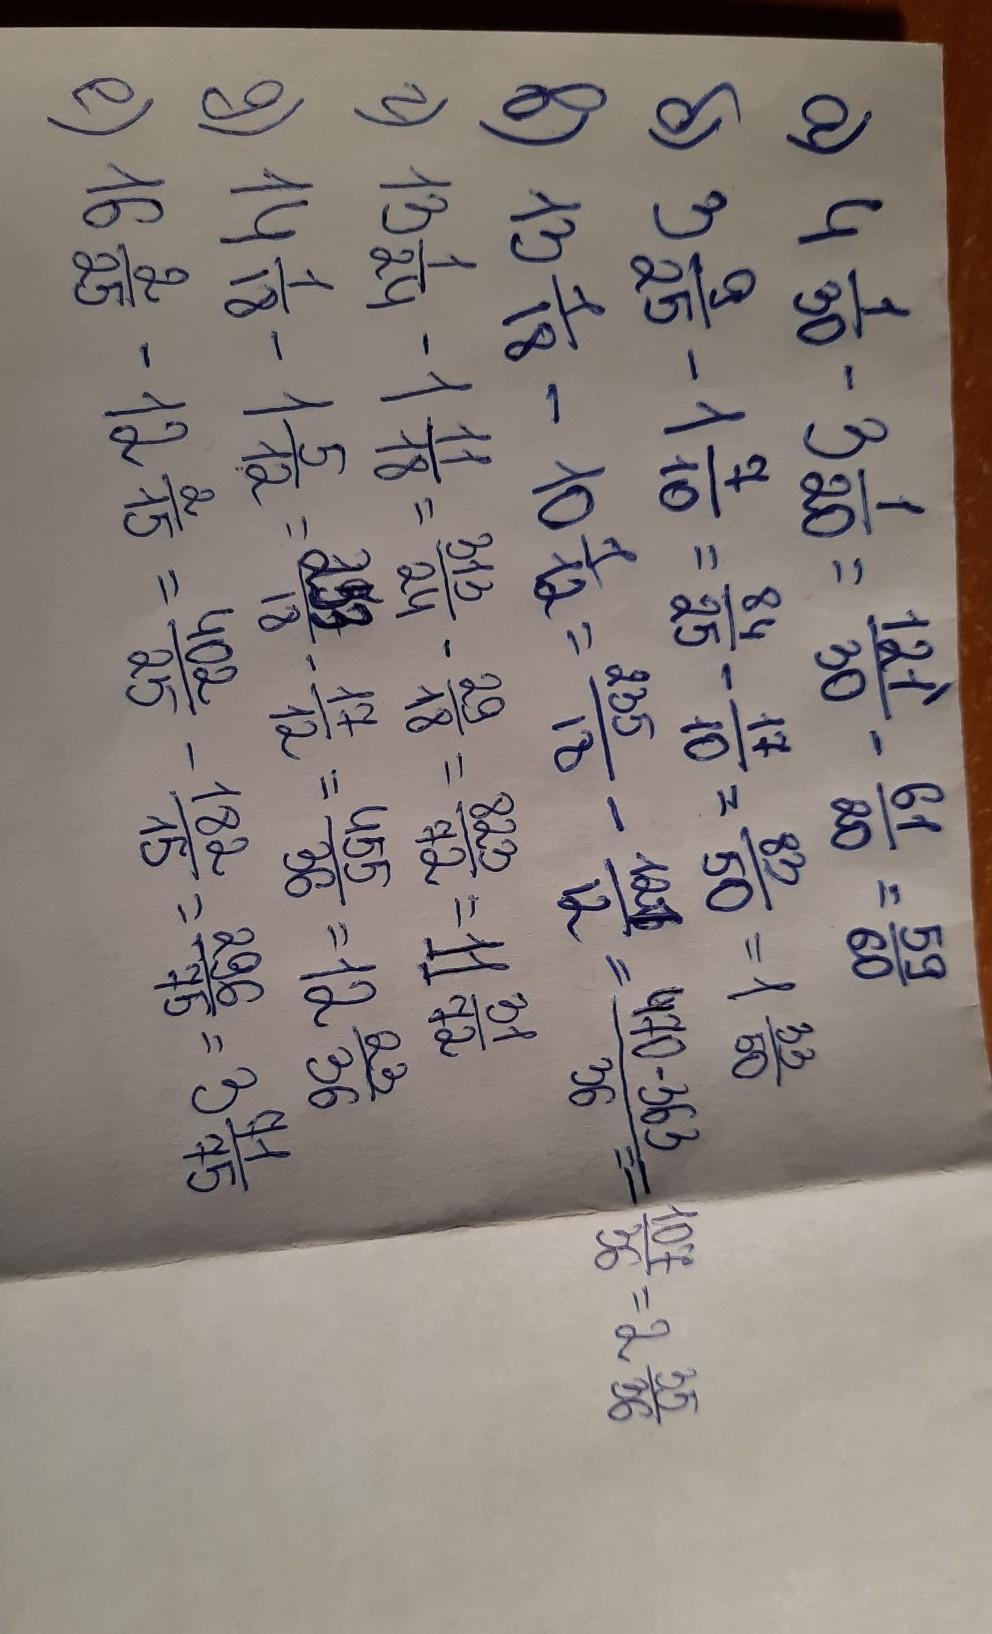 а) 4 1/30 - 3 1/20 = 121/30 - 61/20 = 59/60
б) 3 9/25 - 1 7/10 = 84/25 - 17/10 = 83/50 = 1 33/50
в) 13 1/18 - 10 1/12 = 235/18 - 121/12 = 470-363/36 = 107/36 = 2 35/36
г) 13 1/24 - 1 11/18 = 313/24 - 29/18 = 823/72 = 11 31/72
д) 14 1/18 - 1 5/12 = 253/18 - 17/12 = 455/36 = 12 23/36
е) 16 2/25 - 12 2/15 = 402/25 - 182/15 = 296/75 = 3 71/75